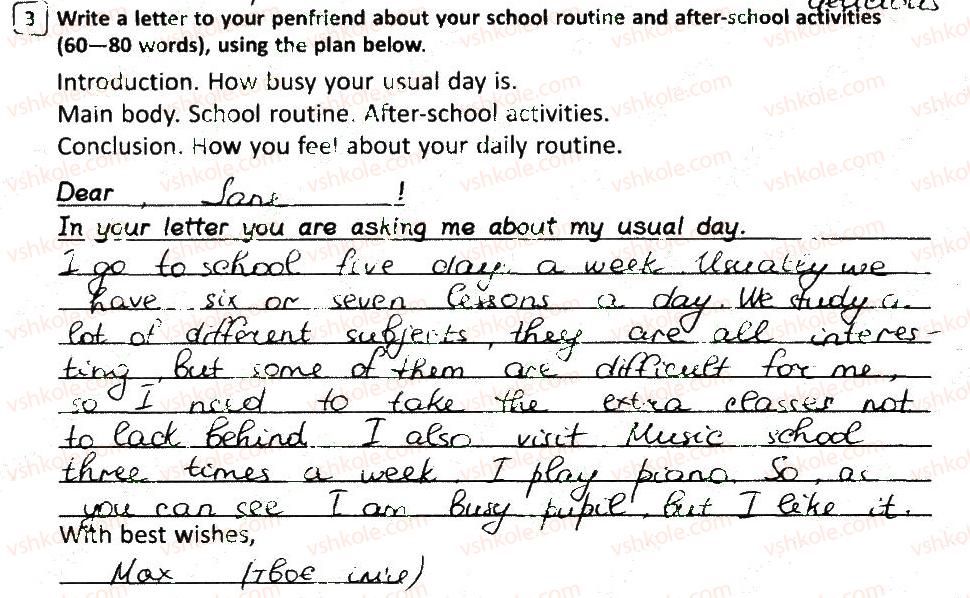 3 Write a letter to your penfriend about your school routine and after-school activities
(60—80 words), using the plan below.
Introduction. How busy your usual day is.
Main body. School routine. After-school activities.
Conclusion. How you feel about your daily routine.
Dear, Jane!
In your letter you are asking me about my usual day.
I go to school five day a week. Usually we
have six or seven lessons a day. We study a
lot of different subjects, they are all interes-
ting, but some of them are difficult for me,
so I need to take the extra classes not
to lack behind. I also visit Music school
three times a week. I play piano. So, as
you can see I am busy pupil, but I like it.
With best wishes,
Max (твоє ім'я)
vshkole.com